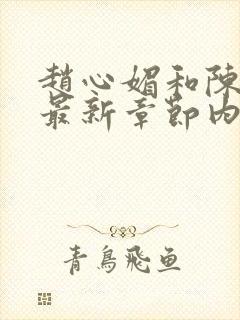 趙心媚和陳
最新章節內
青鳥飛魚